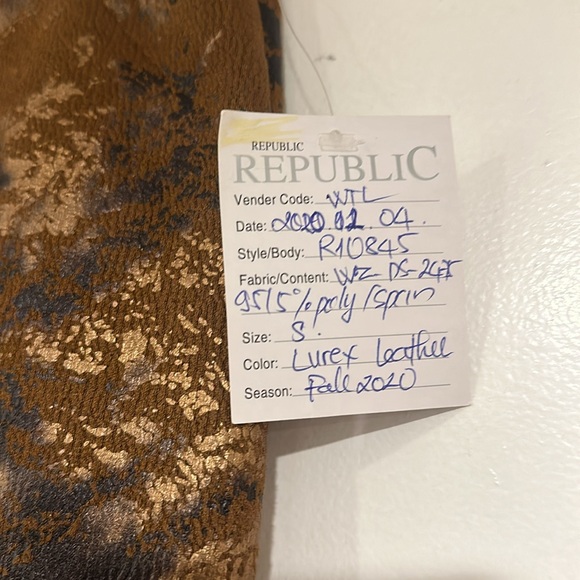 REPUBLIC
REPUBLIC
Vender Code: WTL
Date: 2020.02.04.
Style/Body: R10845
Fabric/Content: WFZ DS-2475
95/5% poly/span
Size: S.
Color: Lurex Leather
Season: Fall 2020